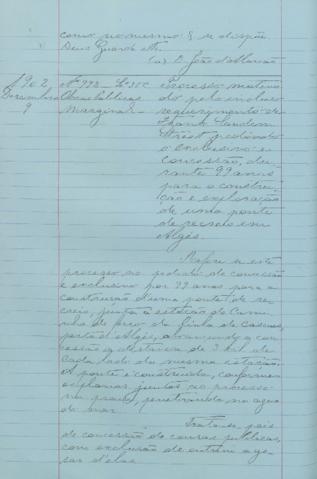 como no mesmo § se dispõe.
Deus Guarde etc.
(a) D. João d'Alarcão
1902
Dezembro
9
Nº 993 - Lº 35 C
Obras Publicas
Marginal -
Processo motiva
do pelo incluso
requerimento de
Street pedindo
o exclusivo e
concessão, du
rante 99 annos
para a constru
ção e exploração
de uma ponte
de recreio em
Algés.
Refere-se este
processo ao pedido de concessão
e exclusivo por 99 annos para a
construcção d'uma ponte de re
creio, junto á estação do Cami
nho de ferro da linha de Cascaes,
perto d'Algés, abrangendo a con
cessão a distancia de 3 kil. de
cada lado da mesma estação.
A ponte é construida, conforme
os planos juntos ao processo
na praia, penetrando na agua
do mar.
Trata-se pois
de concessão de cousas publicas,
com exclusão de outrem a go
sar d'elas.